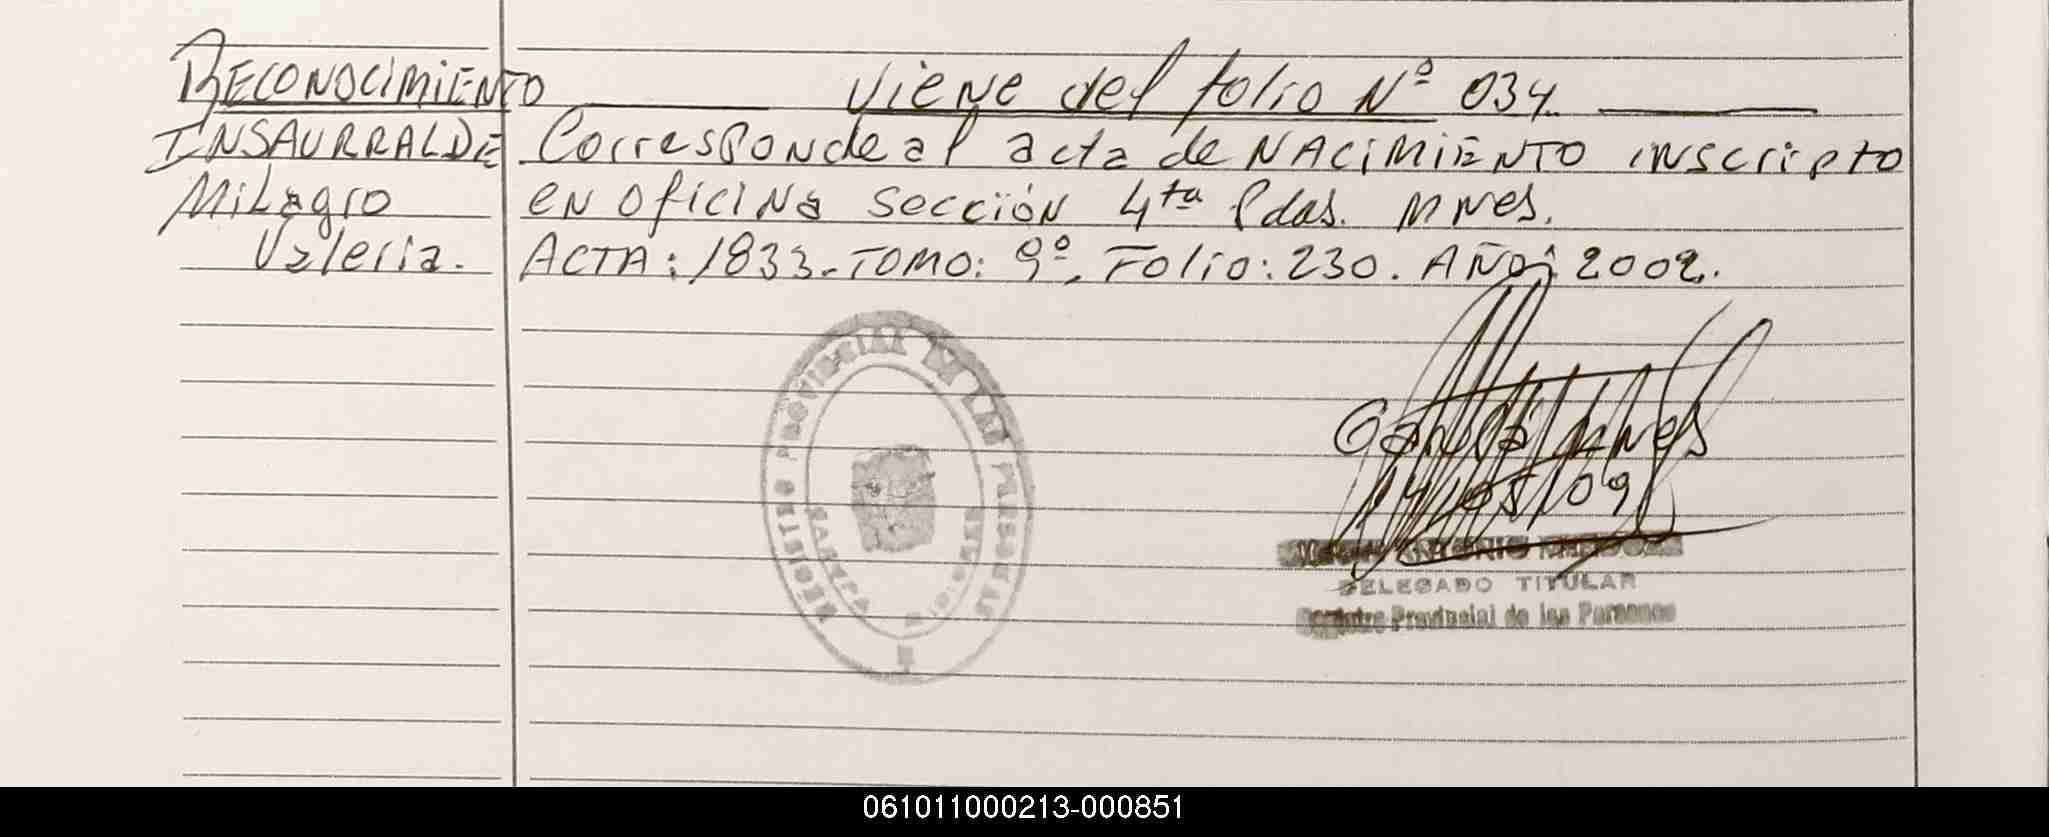 RECONOCIMIENTO
INSAURRALDE
Milagro
Valeria.
Viene del folio Nº 034.
Corresponde al acta de NACIMIENTO inscripto
en Oficina Sección 4ta Pdas. Mnes.
ACTA: 1833. TOMO: 9º. Folio: 230. AÑO: 2002.
REGISTRO PROVINCIAL DE LAS PERSONAS
Mnes
/05/09
ANTONIO MENDOZA
DELEGADO TITULAR
Registro Provincial de las Personas
061011000213-000851